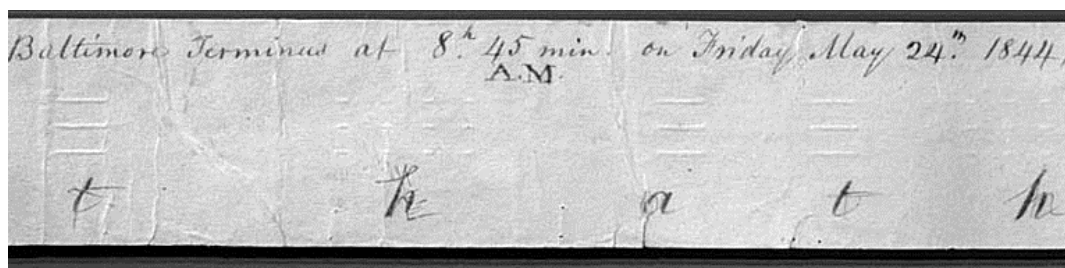 Baltimore Terminus at 8.h 45 min. on Friday May 24.th 1844,
A.M.
t h a t h